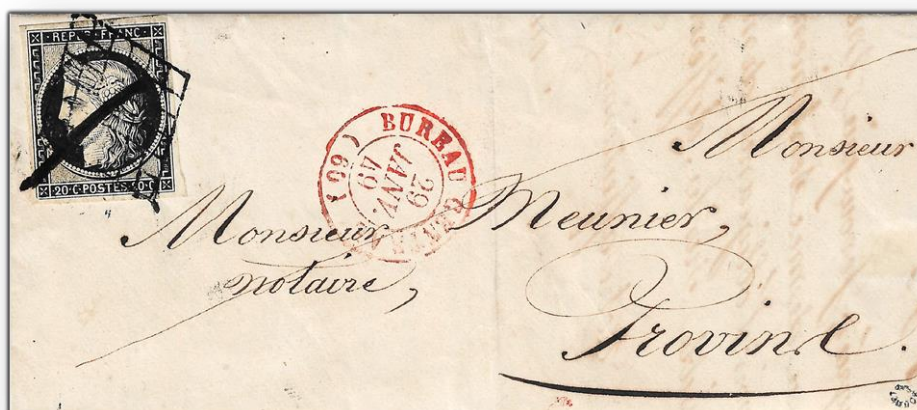 REPUB FRANC
20 C POSTES 20 C
BUREAU CENTRAL (60)
29
JANV.
49
Monsieur
Monsieur Meunier,
notaire,
Provins.